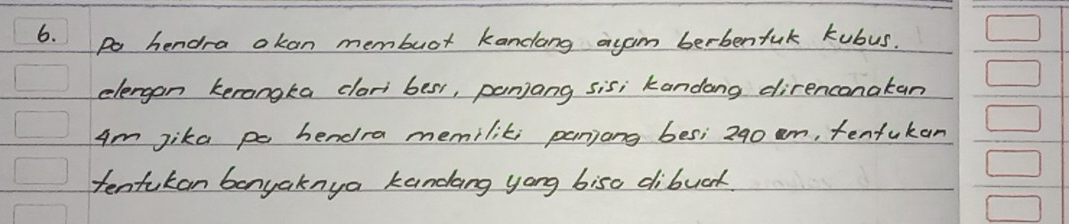 6. Pa hendra akan membuat kandang ayam berbentuk kubus.
dengan kerangka dari besi, panjang sisi kandang direncanakan
4m jika pa hendra memiliki panjang besi 240 m, tentukan
tentukan banyaknya kandang yang bisa dibuat.